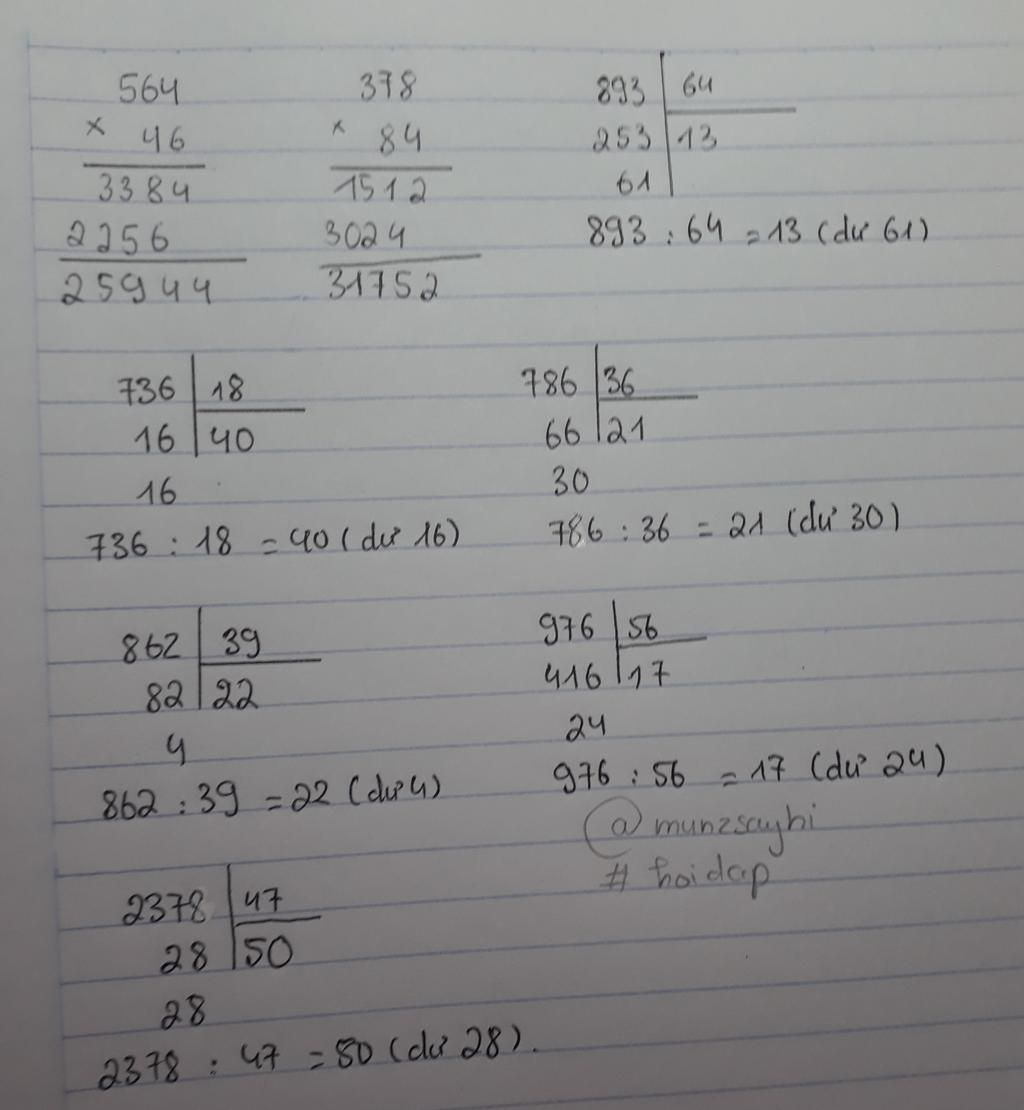 564 378 893 64
× 46 × 84 253 13
3384 1512 61
2256 3024 893 : 64 = 13 (dư 61)
25944 31752
736 18 786 36
16 40 66 21
16 30
736 : 18 = 40 (dư 16) 786 : 36 = 21 (dư 30)
862 39 976 56
82 22 416 17
4 24
862 : 39 = 22 (dư 4) 976 : 56 = 17 (dư 24)
@munzsayhi
# hoidap
2378 47
28 50
28
2378 : 47 = 50 (dư 28).